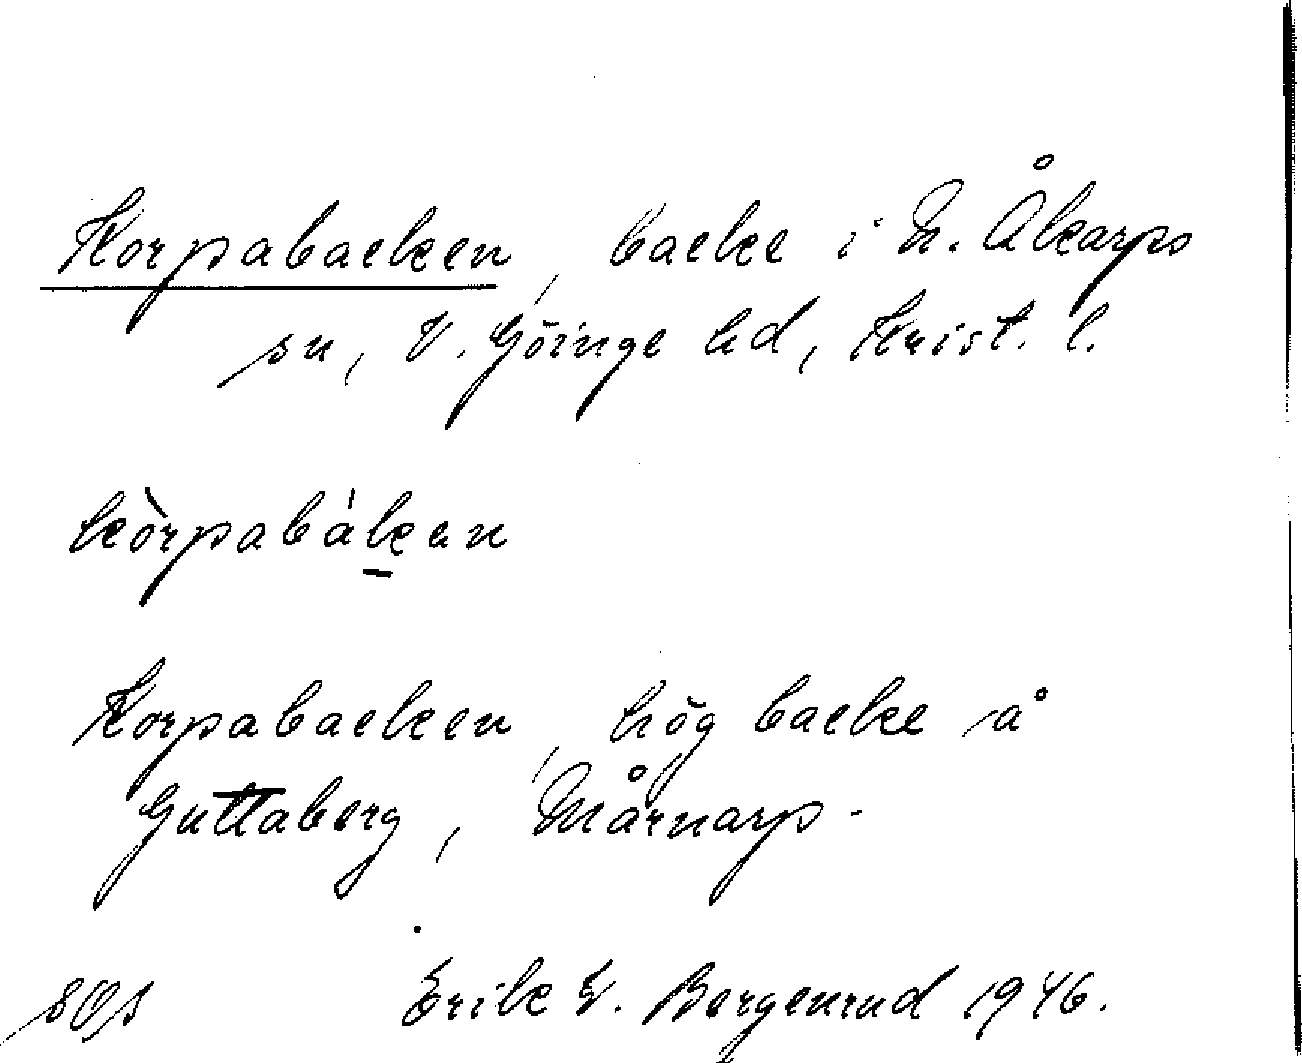 Korpabacken, backe i N. Åkarps
sn, V. Göinge hd, Krist. l.
kòrpabákan
Korpabacken, hög backe å
Guttaberg, Mårnarp.
Erik E. Bergenrud 1946.